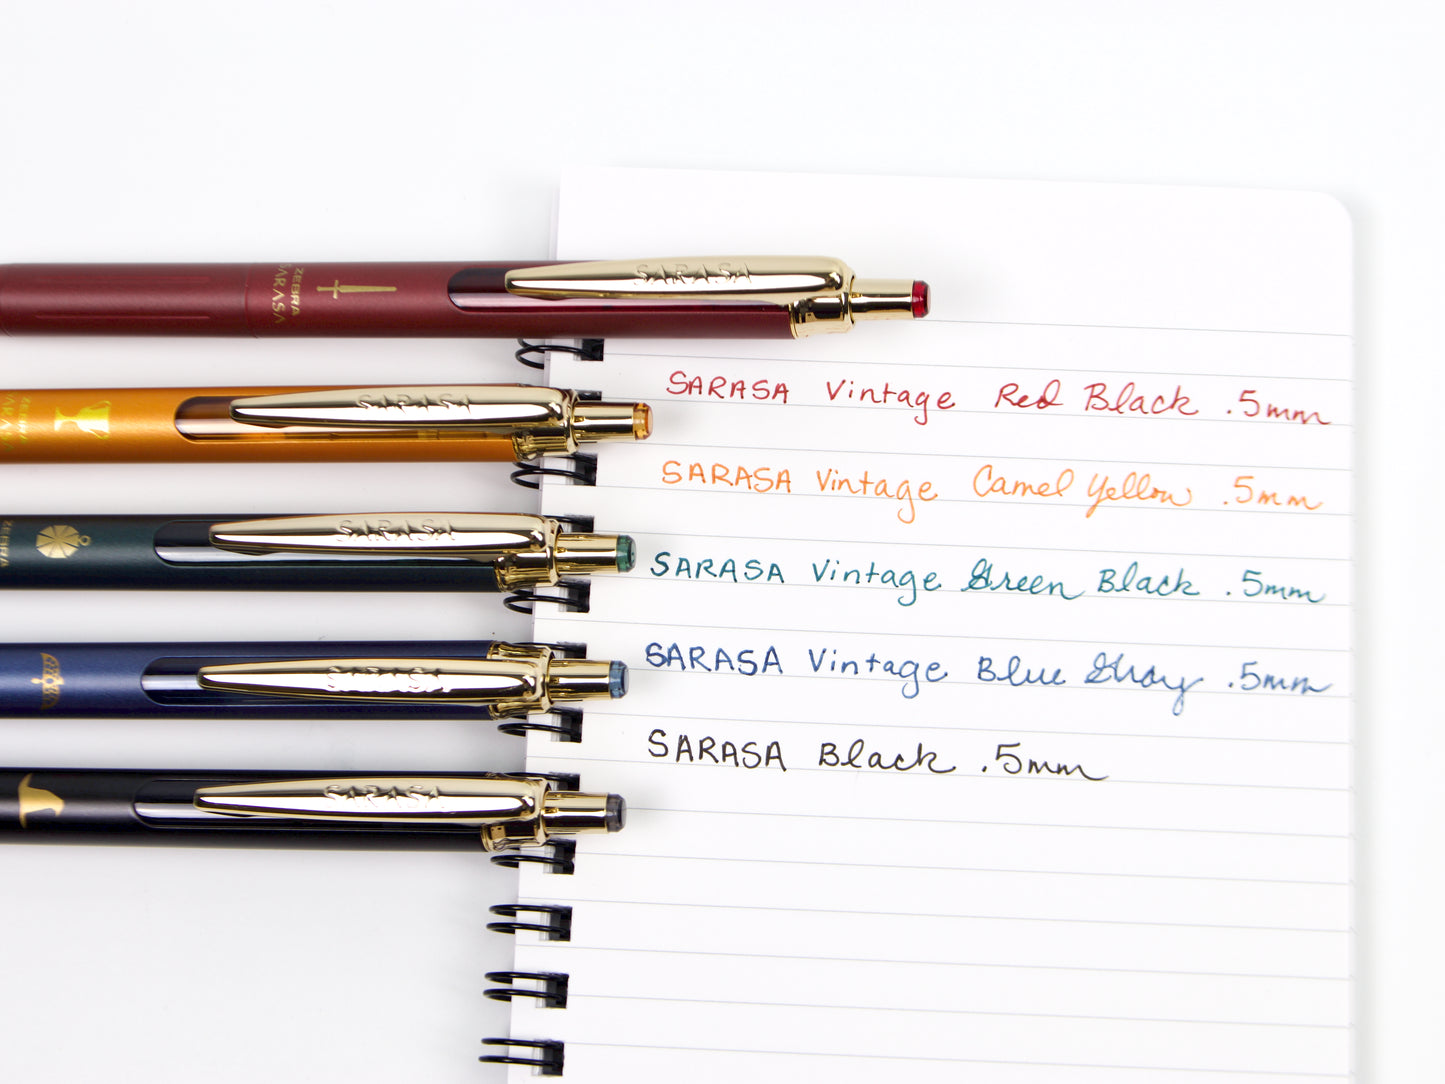 SARASA
ZEBRA
SARASA
SARASA Vintage Red Black .5mm
SARASA
ZEBRA
SARASA
SARASA Vintage Camel Yellow .5mm
SARASA
ZEBRA
SARASA Vintage Green Black .5mm
SARASA
SARASA Vintage Blue Gray .5mm
SARASA
SARASA Black .5mm